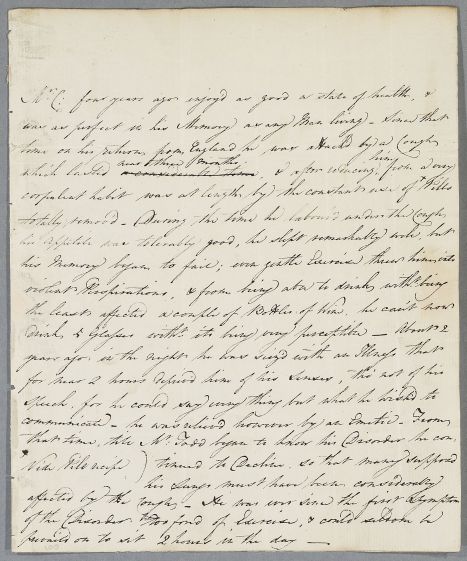 Mr. C. four years ago enjoy'd as good a state of health, &
was as perfect in his Memory as any Man living - Since that
time on his return from England he was attack'd by a Cough
which lasted near three months, & after reducing him from a very
corpulent habit was at length by the constant use of Pills
totally remov'd - During the time he labour'd under the Cough,
his appetite was tolerably good, he slept remarkably well, but
his Memory began to fail; even gentle Exercise threw him into
violent Perspirations, & from being able to drink without being
the least affected a couple of Bottles of Wine, he can't now
drink 2 Glasses without its being very perceptible - About 2
years ago in the night he was seiz'd with an Illness that
for near 2 hours depriv'd him of his Senses, tho' not of his
Speech, for he could say every thing but what he wish'd to
communicate - he was reliev'd however by an Emetic - From
that time, till Mr. Todd began to know his Disorder he con
Vide Pile neuse ) tinued to Decline, so that many supposed
his Lungs must have been considerably
affected by the Cough - He was ever since the first Symptom
of the Disorder too fond of Exercise, & could seldom be
prevail'd on to sit 2 hours in the day -